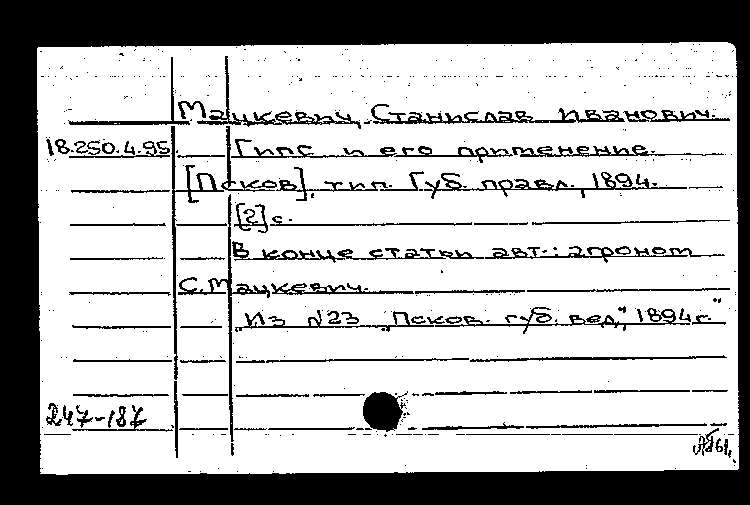 Мацкевич, Станислав Иванович.
18.250.4.95. Гипс и его применение.
[Псков], тип. Губ. правл., 1894.
[2] с.
В конце статьи авт.: агроном
С. Мацкевич.
"Из №23 "Псков. губ. вед.", 1894 г."
247-187